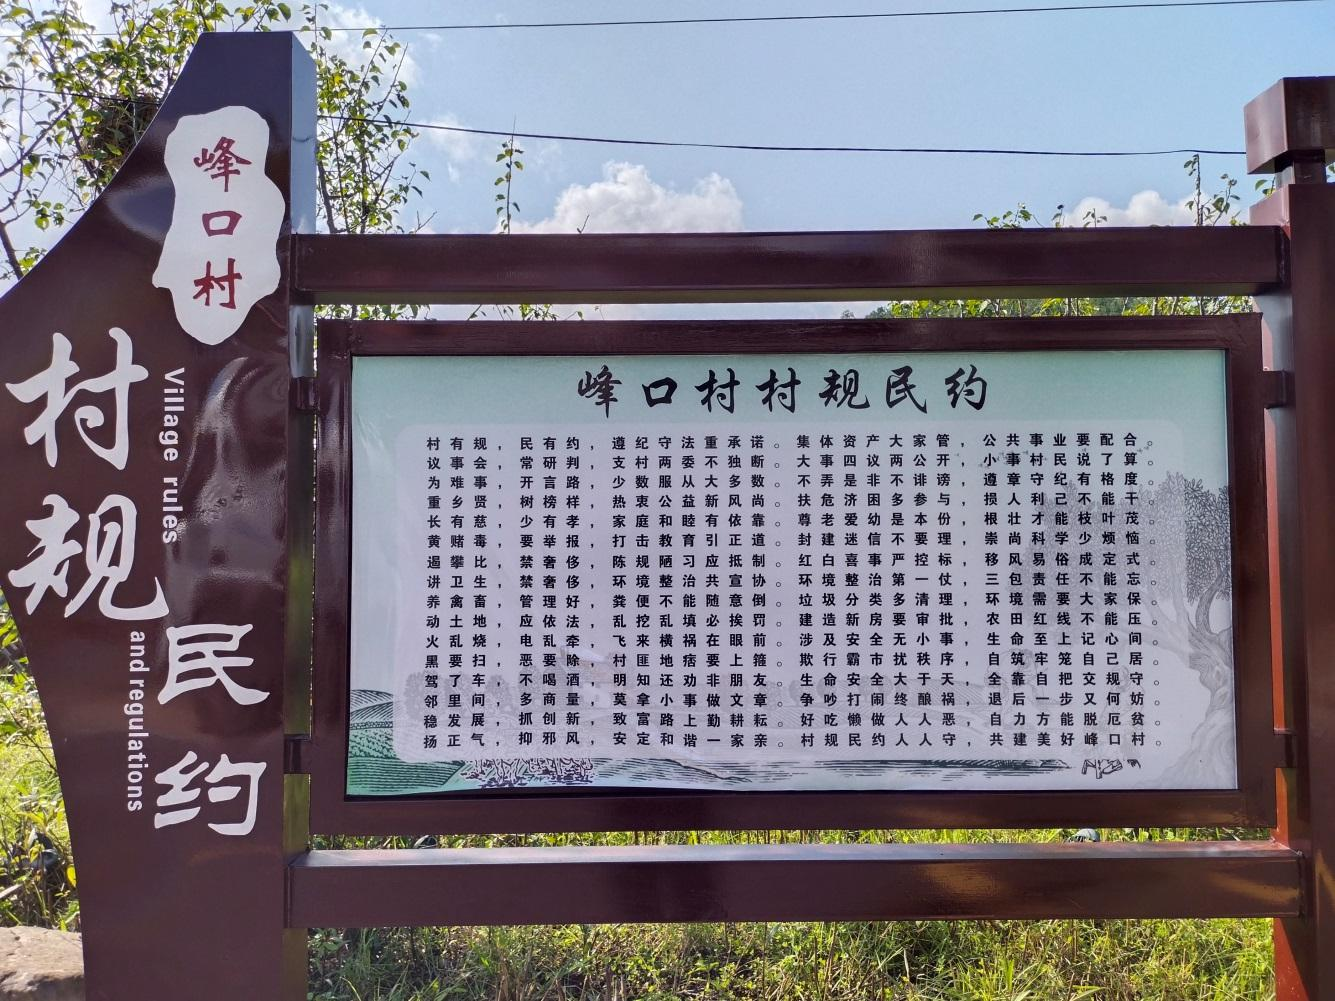 峰口村
村规民约
Village rules and regulations
峰口村村规民约
村有规，民有约，遵纪守法重承诺。集体资产大家管，公共事业要配合。
议事会，常研判，支村两委不独断。大事四议两公开，小事村民说了算。
为难事，开言路，少数服从大多数。不弄是非不诽谤，遵章守纪有格度。
重乡贤，树榜样，热衷公益新风尚。扶危济困多参与，损人利己不能干。
长有慈，少有孝，家庭和睦有依靠。尊老爱幼是本份，根壮才能枝叶茂。
黄赌毒，要举报，打击教育引正道。封建迷信不要理，崇尚科学少烦恼。
遏攀比，禁奢侈，陈规陋习应抵制。红白喜事严控标，移风易俗成定式。
讲卫生，禁奢侈，环境整治共宣协。环境整治第一仗，三包责任不能忘。
养禽畜，管理好，粪便不能随意倒。垃圾分类多清理，环境需要大家保。
动土地，应依法，乱挖乱填必挨罚。建造新房要审批，农田红线不能压。
火乱烧，电乱牵，飞来横祸在眼前。涉及安全无小事，生命至上记心间。
黑要扫，恶要除，村匪地痞要上箍。欺行霸市扰秩序，自筑牢笼自己居。
驾了车，不喝酒，明知还劝非朋友。生命安全大于天，全靠自把交规守。
邻里间，多商量，莫拿小事做文章。争吵打闹终酿祸，退后一步又何妨。
稳发展，抓创新，致富路上勤耕耘。好吃懒做人人恶，自力方能脱厄贫。
扬正气，抑邪风，安定和谐一家亲。村规民约人人守，共建美好峰口村。